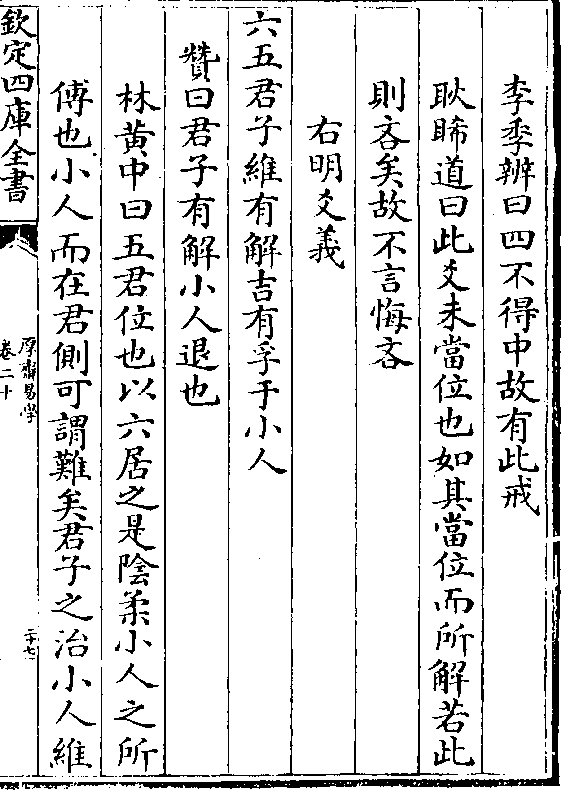 李季辨曰四不得中故有此戒
耿睎道曰此爻未當位也如其當位而所解若此
則吝矣故不言悔吝
右明爻義
六五君子維有解吉有孚于小人
贊曰君子有解小人退也
林黄中曰五君位也以六居之是陰柔小人之所
傅也小人而在君側可謂難矣君子之治小人維
欽定四庫全書
厚齋易學
卷二十
二十七